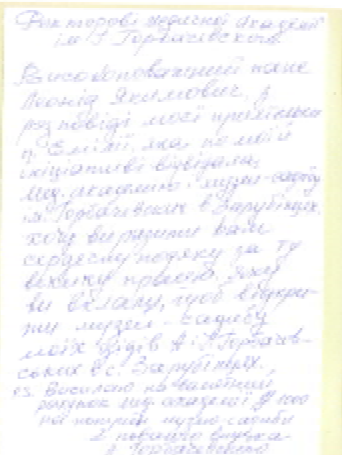 Ректорові медичної Академії
ім. І Горбачевского.
Високоповажний пане
Леонід Якимович, з
розповіді моєї
п. Емілії, яка по моїй
ініціативі відвідала
мед. академію і музей-садибу
ім. Горбачевских в Зарубинцях,
хочу виразити вам
сердечну подяку за ту
велику працю, яку
ви вклали, щоб відкри-
ти музей - садибу
моїх дідів А і І Горбачев-
ських в с. Зарубинцях.
Висилаю
рисунок мед академії
музею садиби
З повагою внучка
Горбачевського